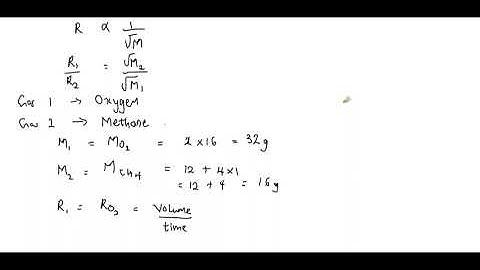 R ∝ 1/√M
R1/R2 = √M2/√M1
Gas 1 → Oxygen
Gas 2 → Methane
M1 = MO2 = 2 × 16 = 32g
M2 = MCH4 = 12 + 4×1
= 12 + 4 = 16g
R1 = RO2 = Volume/time